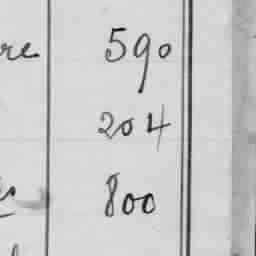 re 590
204
800